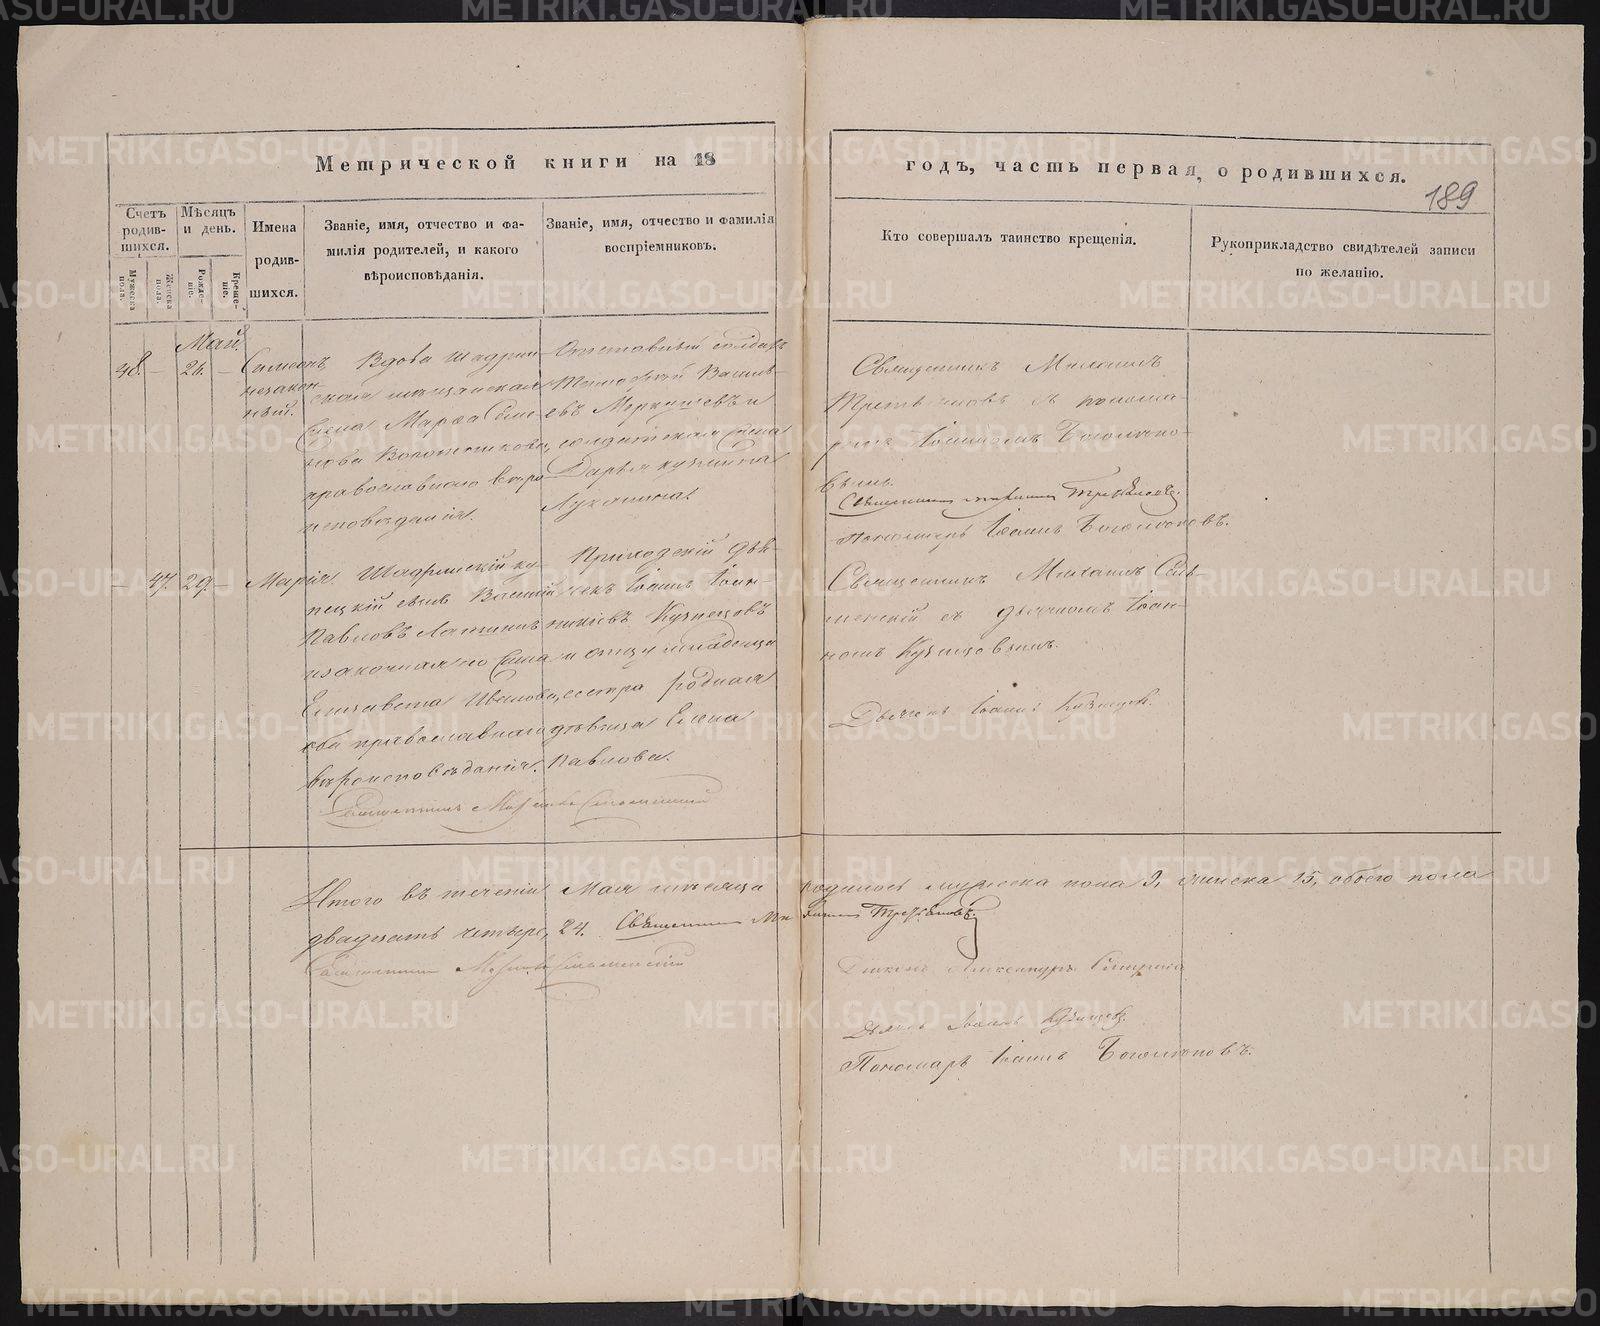 Метрической книги на 18
годъ, часть первая, о родившихся.
189
Счетъ родив-шихся.
Мужеска пола.
Женска пола.
Мѣсяцъ и день.
Рожде-ніе.
Креще-ніе.
Имена родив-шихся.
Званіе, имя, отчество и фа-
милія родителей, и какого
вѣроисповѣданія.
Званіе, имя, отчество и фамилія
воспріемниковъ.
Кто совершалъ таинство крещенія.
Рукоприкладство свидѣтелей записи
по желанію.
Май.
48. – 26. –
Симеонъ
незакон-
ный.
Вдова Шадрин-
ская мѣщанская
Марфа Семе-
нова
православнаго вѣро-
исповѣданія.
Отставный солдатъ
Тимофей Василь-
евъ Меркушевъ и
солдатская
Дарья Кузмина
Лукоянина.
Священникъ Михаилъ
Третьяковъ съ понома-
ремъ Іоанномъ Боголѣпо-
вымъ.
Священникъ Михаилъ Третьяковъ.
Пономарь Іоаннъ Боголѣповъ.
– 47. 29. –
Марія.
Шадринскій ку-
пецкій сынъ Василій
Павловъ
и законная его жена
Елисавета Иванова,
оба православнаго
вѣроисповѣданія.
Приходскій дья-
чекъ Іоаннъ Іоан-
никіевъ Кузнецовъ
и отцу младенца
сестра родная
дѣвица Елена
Павлова.
Священникъ Михаилъ
съ дьячкомъ Іоан-
номъ Кузнецовымъ.
Дьячекъ Іоаннъ Кузнецовъ.
Священникъ
Итого въ теченіи Мая мѣсяца родилось мужеска пола 9, женска 15, обоего пола
двадцать четыре, 24. Священникъ Михаилъ Третьяковъ.
Священникъ
Діаконъ Александръ
Дьячекъ Іоаннъ Кузнецовъ.
Пономарь Іоаннъ Боголѣповъ.
METRIKI.GASO-URAL.RU